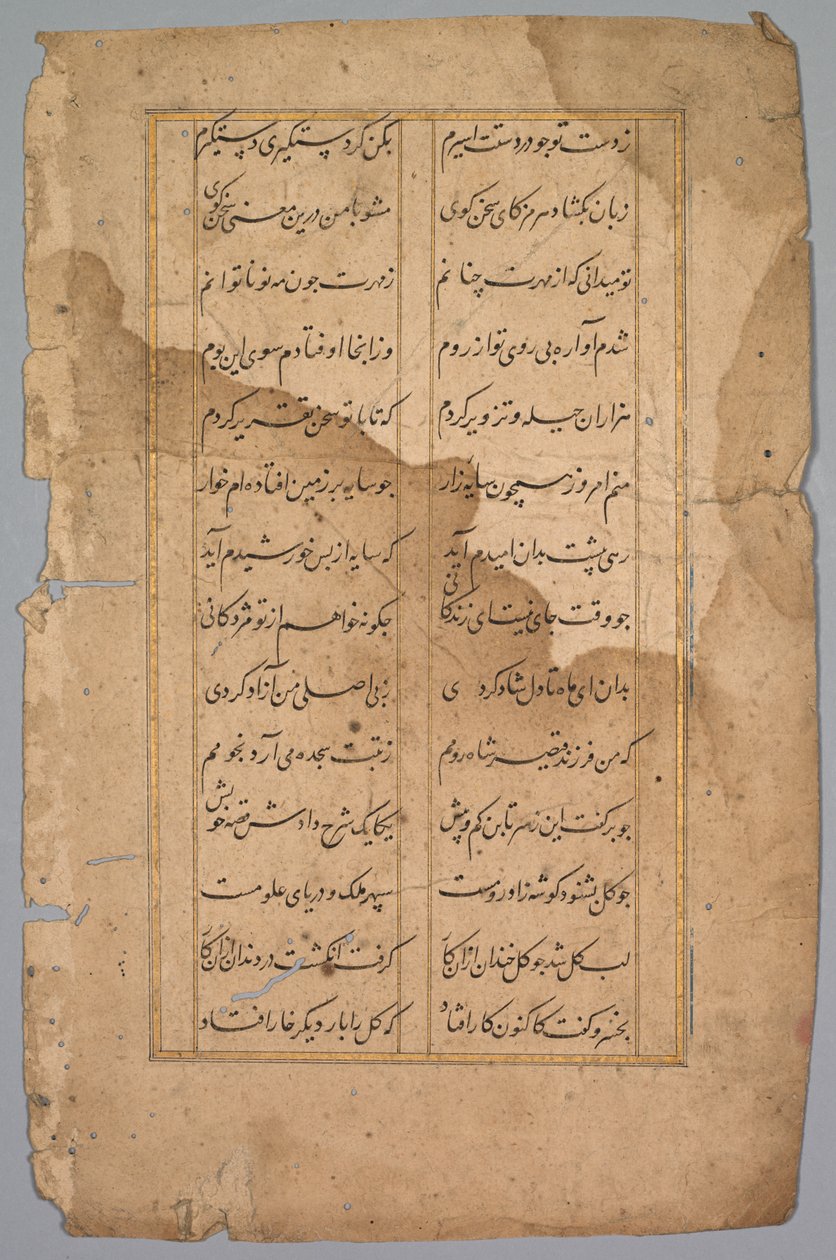 زدست تو جو در دستت اسیرم بکن کرد ستیکری دستیکرم
زبان بکشاد هرمز کای سخن کوی مشو با من درین معنی سخن کوی
تو میدانی که از مهرت چنانم زمهرت جون مه نو ناتوانم
شدم آواره بی روی تو از روم وزانجا اوفتادم سوی این بوم
هزاران حیله و تزویر کردم که تا با تو سخن تقریر کردم
منم امروز همچون سایه زار جو سایه بر زمین افتاده ام خوار
رهی پشت بدان امیدم آید که سایه از بس خورشیدم آید
جو وقت جای نیست ای زندکانی جکونه خواهم از تو مژدکانی
بدان ای ماه تا دل شاد کردی زبی اصلی من آزاد کردی
که من فرزند قیصر شاه رومم زتبت سجده می آرد نجومم
جو برکفت این زسر تا بن کم وبیش یکایک شرح دادش قصه خویش
جو کل بشنود کوشه زاو رومست سپهر ملک و دریای علومست
لب کل شد جو کل خندان ازان کار کرفت انکشت در دندان ازان کار
بخسرو کفت کاکنون کار افتاد که کل را بار دیکر خار افتاد